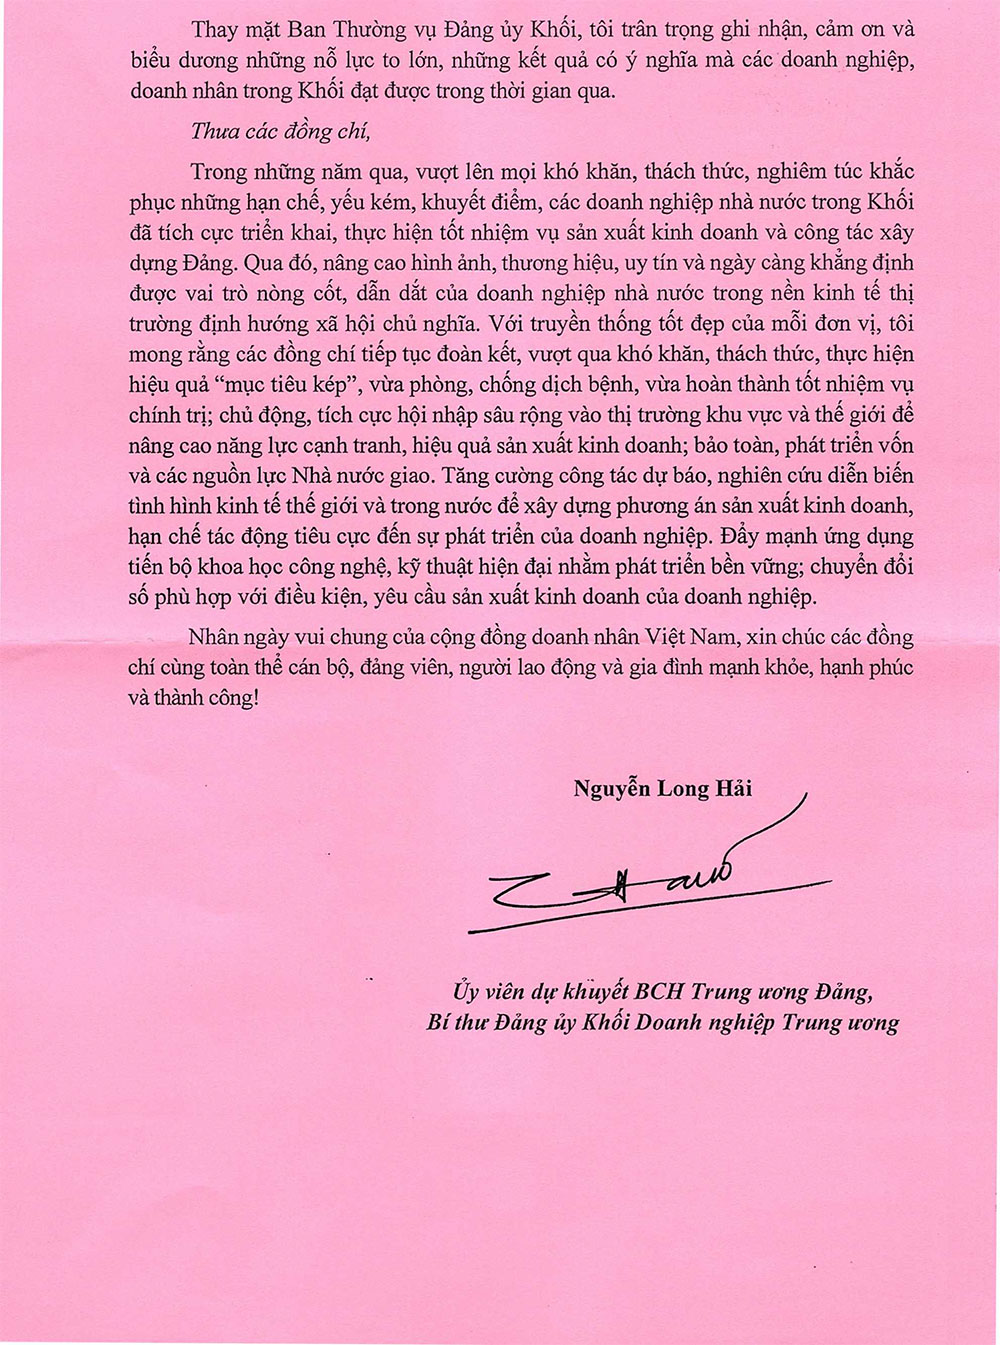 Thay mặt Ban Thường vụ Đảng ủy Khối, tôi trân trọng ghi nhận, cảm ơn và
biểu dương những nỗ lực to lớn, những kết quả có ý nghĩa mà các doanh nghiệp,
doanh nhân trong Khối đạt được trong thời gian qua.
Thưa các đồng chí,
Trong những năm qua, vượt lên mọi khó khăn, thách thức, nghiêm túc khắc
phục những hạn chế, yếu kém, khuyết điểm, các doanh nghiệp nhà nước trong Khối
đã tích cực triển khai, thực hiện tốt nhiệm vụ sản xuất kinh doanh và công tác xây
dựng Đảng. Qua đó, nâng cao hình ảnh, thương hiệu, uy tín và ngày càng khẳng định
được vai trò nòng cốt, dẫn dắt của doanh nghiệp nhà nước trong nền kinh tế thị
trường định hướng xã hội chủ nghĩa. Với truyền thống tốt đẹp của mỗi đơn vị, tôi
mong rằng các đồng chí tiếp tục đoàn kết, vượt qua khó khăn, thách thức, thực hiện
hiệu quả “mục tiêu kép”, vừa phòng, chống dịch bệnh, vừa hoàn thành tốt nhiệm vụ
chính trị; chủ động, tích cực hội nhập sâu rộng vào thị trường khu vực và thế giới để
nâng cao năng lực cạnh tranh, hiệu quả sản xuất kinh doanh; bảo toàn, phát triển vốn
và các nguồn lực Nhà nước giao. Tăng cường công tác dự báo, nghiên cứu diễn biến
tình hình kinh tế thế giới và trong nước để xây dựng phương án sản xuất kinh doanh,
hạn chế tác động tiêu cực đến sự phát triển của doanh nghiệp. Đẩy mạnh ứng dụng
tiến bộ khoa học công nghệ, kỹ thuật hiện đại nhằm phát triển bền vững; chuyển đổi
số phù hợp với điều kiện, yêu cầu sản xuất kinh doanh của doanh nghiệp.
Nhân ngày vui chung của cộng đồng doanh nhân Việt Nam, xin chúc các đồng
chí cùng toàn thể cán bộ, đảng viên, người lao động và gia đình mạnh khỏe, hạnh phúc
và thành công!
Nguyễn Long Hải
Ủy viên dự khuyết BCH Trung ương Đảng,
Bí thư Đảng ủy Khối Doanh nghiệp Trung ương